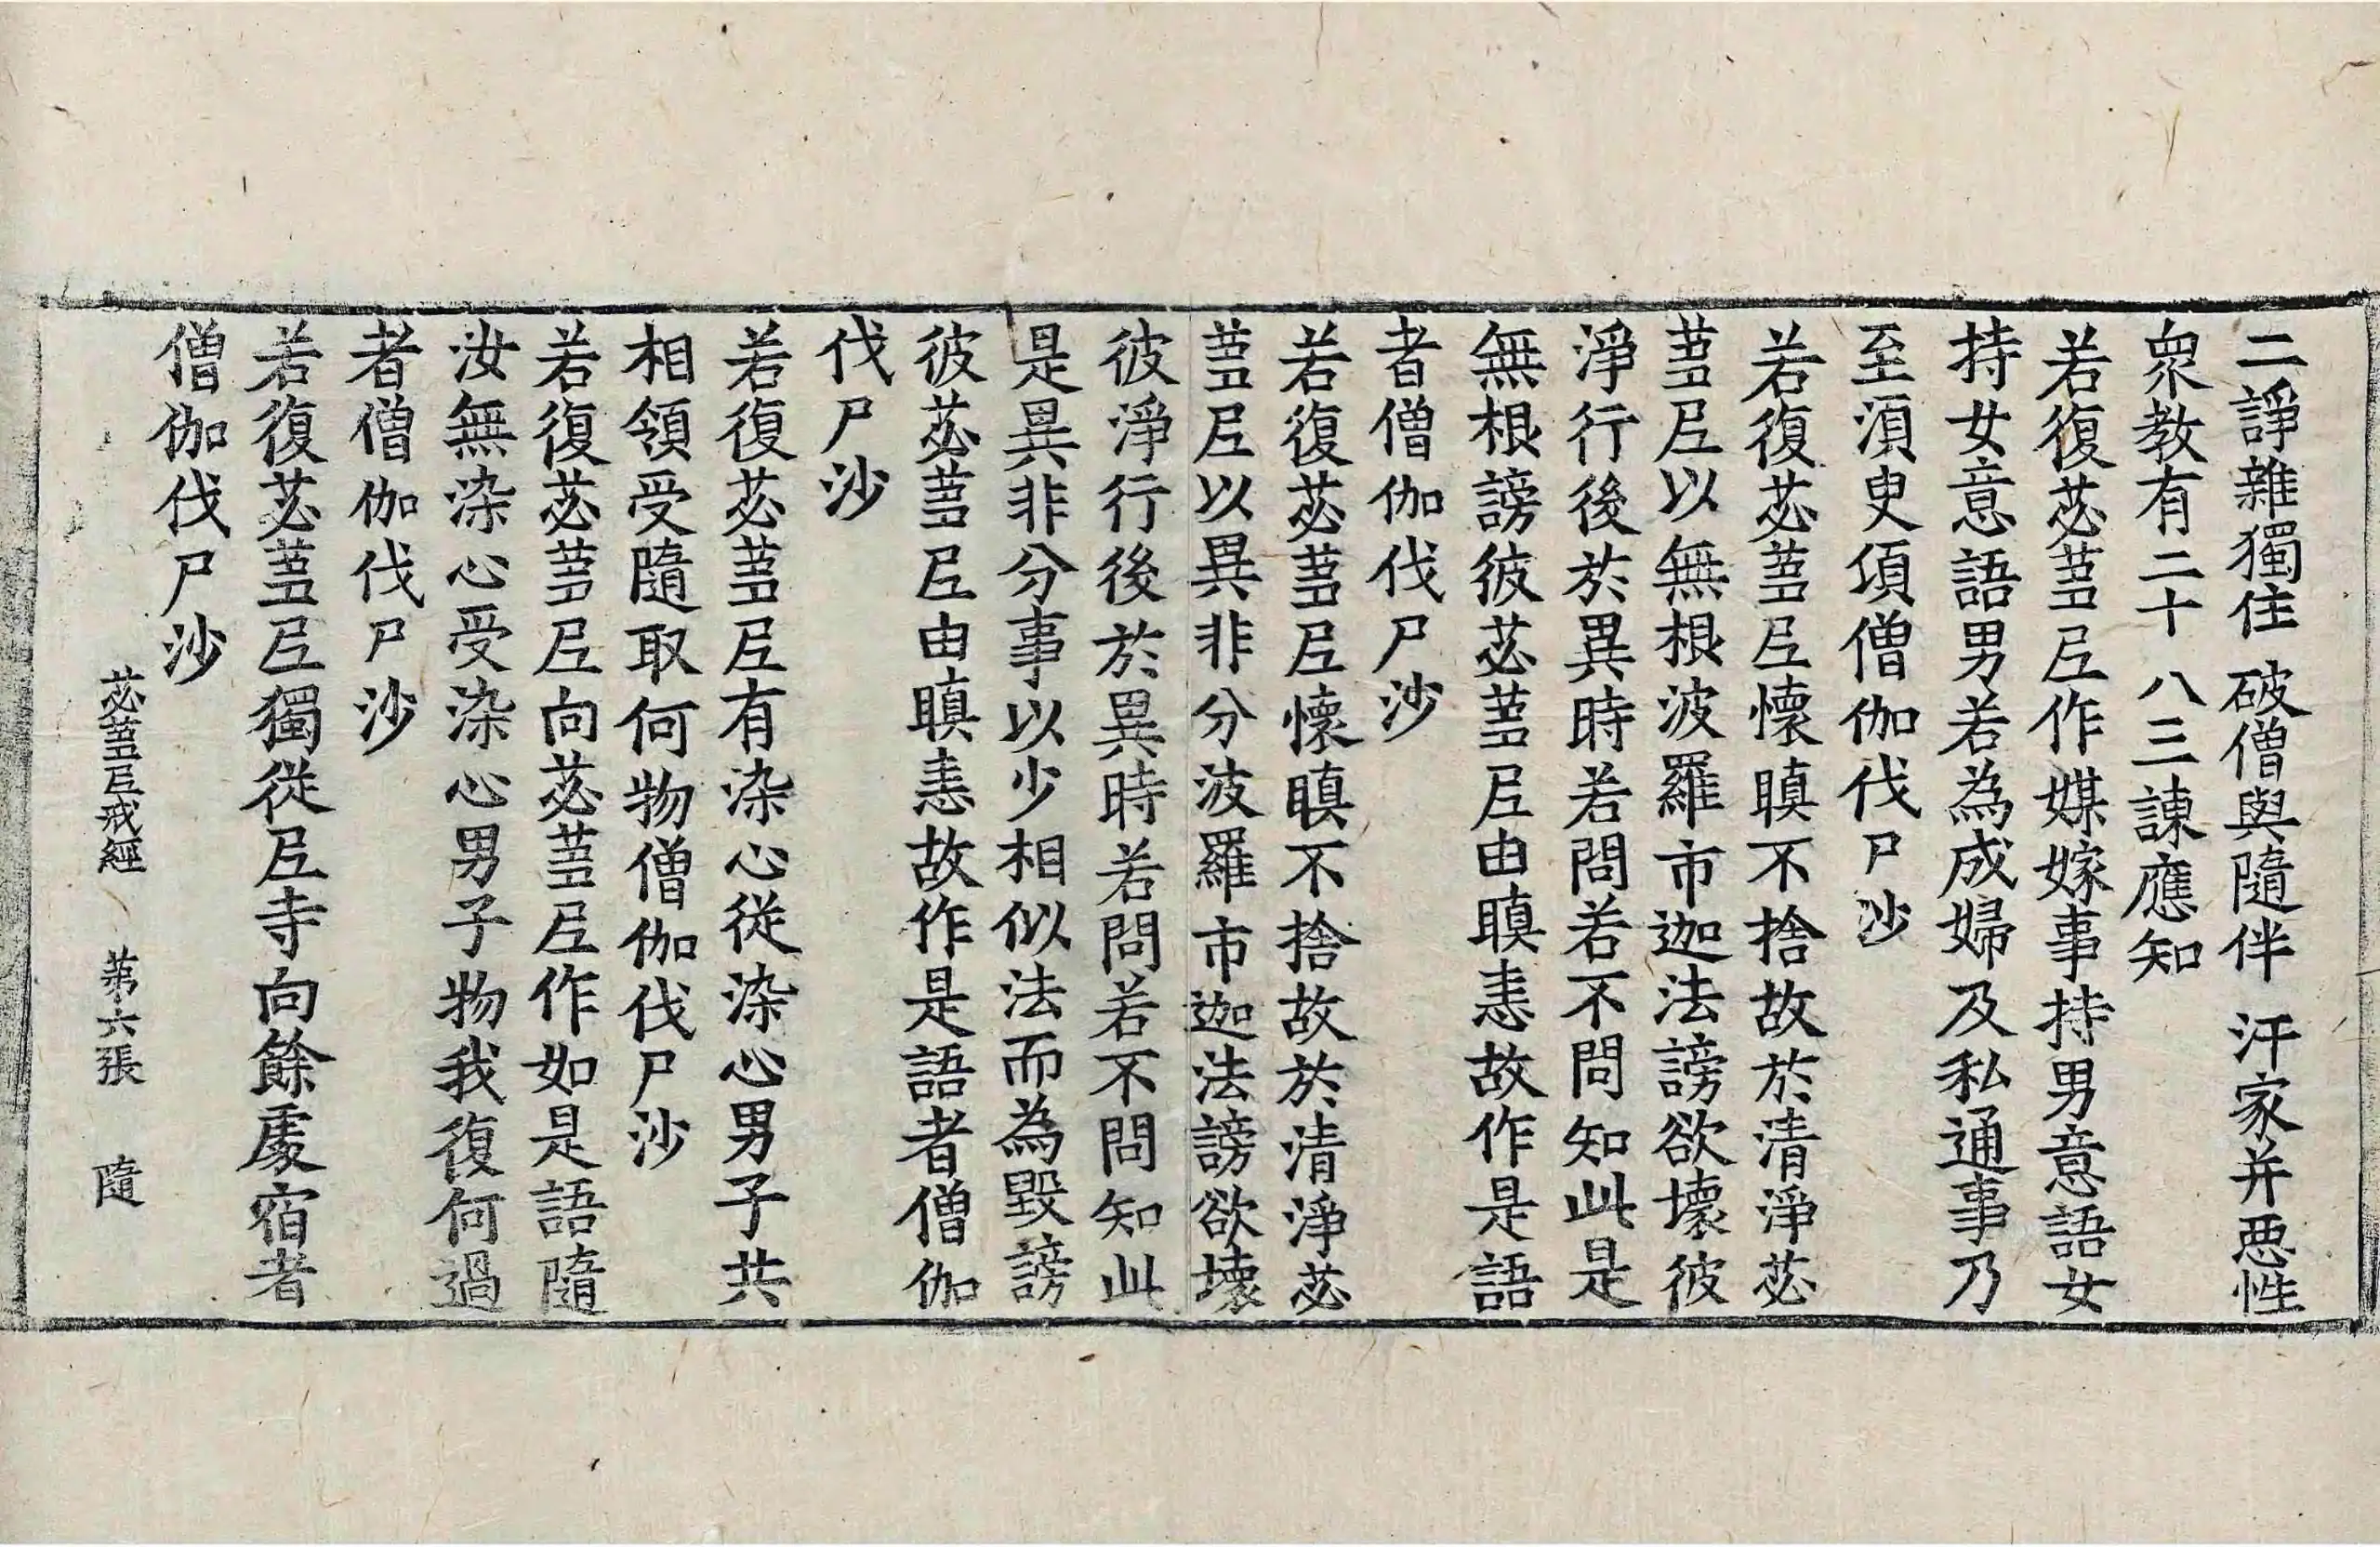 二諍雜獨住 破僧與隨伴 汙家并惡性
衆教有二十 八三諫應知
若復苾蒭尼作媒嫁事持男意語女
持女意語男若為成婦及私通事乃
至須臾頃僧伽伐尸沙
若復苾蒭尼懷瞋不捨故於清淨苾
蒭尼以無根波羅市迦法謗欲壞彼
淨行後於異時若問若不問知此是
無根謗彼苾蒭尼由瞋恚故作是語
者僧伽伐尸沙
若復苾蒭尼懷瞋不捨故於清淨苾
蒭尼以異非分波羅市迦法謗欲壞
彼淨行後於異時若問若不問知此
是異非分事以少相似法而為毀謗
彼苾蒭尼由瞋恚故作是語者僧伽
伐尸沙
若復苾蒭尼有染心從染心男子共
相領受隨取何物僧伽伐尸沙
若復苾蒭尼向苾蒭尼作如是語隨
汝無染心受染心男子物我復何過
者僧伽伐尸沙
若復苾蒭尼獨從尼寺向餘處宿者
僧伽伐尸沙
苾蒭尼戒經 第六張 隨